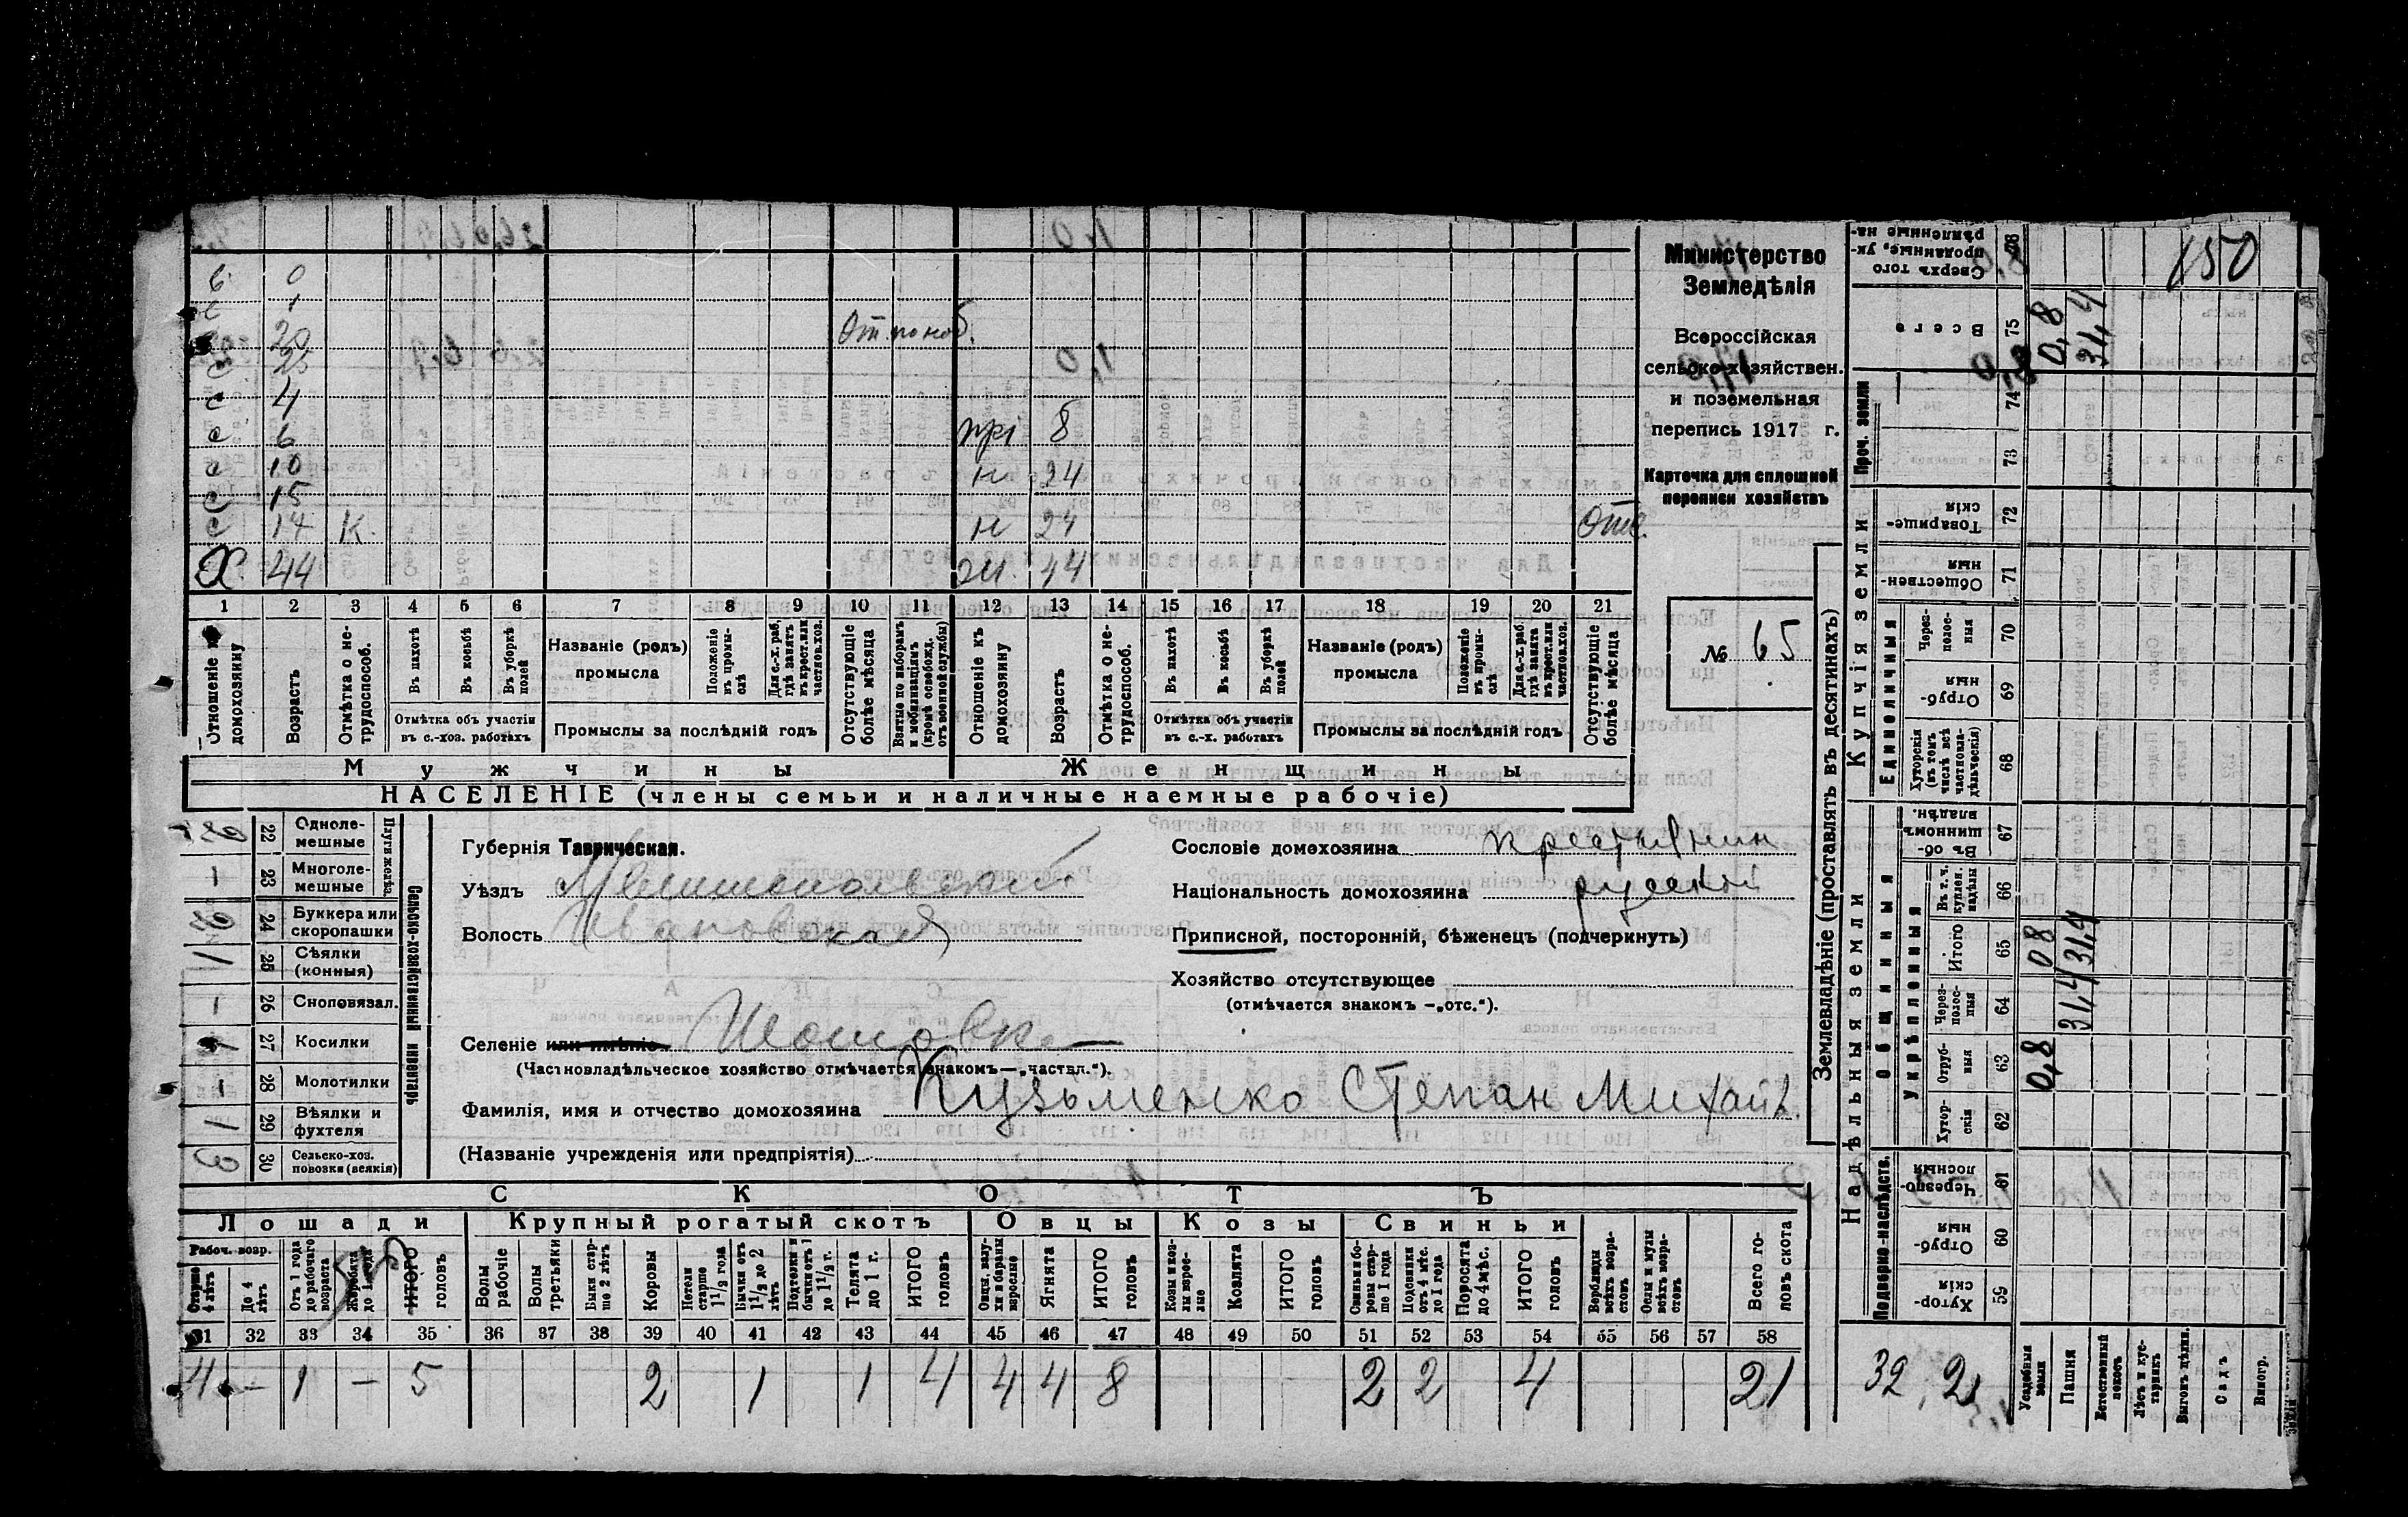 150
в 0
с 1
20 Отъ по наб.
с 25
с 4
с 6 прі 8
с 10 н 24
с 15
с 17 К. н 24 Отс.
Х. 44 Ж. 44
1 2 3 4 5 6 7 8 9 10 11 12 13 14 15 16 17 18 19 20 21
Отношеніе къ домохозяину
Возрастъ
Отмѣтка о нетрудоспособ.
Въ пахотѣ
Въ косьбѣ
Въ уборкѣ полей
Отмѣтка объ участіи въ с.-хоз. работахъ
Названіе (родъ) промысла
Положеніе въ промыслѣ
Для с.-х. раб, гдѣ занятъ въ крест. или частнов. хоз.
Промыслы за послѣдній годъ
Отсутствующіе болѣе мѣсяца
Взятые по наборамъ и мобилизаціямъ (кромѣ освобожд. отъ военной службы)
Отношеніе къ домохозяину
Возрастъ
Отмѣтка о нетрудоспособ.
Въ пахотѣ
Въ косьбѣ
Въ уборкѣ полей
Отмѣтка объ участіи въ с.-х. работахъ
Названіе (родъ) промысла
Положеніе въ промыслѣ
Для с.-х. раб. гдѣ занята въ крест. или частнов. хоз.
Промыслы за послѣдній годъ
Отсутствующіе болѣе мѣсяца
Мужчины Женщины
НАСЕЛЕНІЕ (члены семьи и наличные наемные рабочіе)
Министерство
Земледѣлія
Всероссійская
сельско-хозяйствен.
и поземельная
перепись 1917 г.
Карточка для сплошной
переписи хозяйствъ
№ 65
Сельско-хозяйственный инвентарь
Плуги желѣз.
22 Однолемешные
— 23 Многолемешные
24 Буккера или скоропашки
1 25 Сѣялки (конныя)
— 26 Сноповязал.
1 27 Косилки
— 28 Молотилки
1 29 Вѣялки и фухтеля
3 30 Сельско-хоз. повозки (всякія)
Губернія Таврическая.
Уѣздъ Мелитопольскій
Волость Ивановская
Селеніе или имѣніе
(Частновладѣльческое хозяйство отмѣчается знакомъ — „частвл.“).
Фамилія, имя и отчество домохозяина Кузьменко Степан Михайл.
(Названіе учрежденія или предпріятія)
Сословіе домохозяина крестьянин
Національность домохозяина русскій
Приписной, посторонній, бѣженецъ (подчеркнуть)
Хозяйство отсутствующее
(отмѣчается знакомъ — „отс.“).
СКОТЪ
Лошади Крупный рогатый скотъ Овцы Козы Свиньи
Рабоч. возр.
Старше 4 лѣтъ
До 4 лѣтъ
Отъ 1 года до рабочаго возраста
Жеребята до 1 года
ИТОГО головъ
Волы рабочіе
Волы третьяки
Быки старше 2 лѣтъ
Коровы
Нетели старше 1 1/2 года
Бычки отъ 1 1/2 до 2 лѣтъ
Подтелки и бычки отъ 1 до 1 1/2 г.
Телята до 1 г.
ИТОГО головъ
Овцы, валухи и бараны взрослые
Ягнята
ИТОГО головъ
Козы и козлы взрослые
Козлята
ИТОГО головъ
Свиньи и боровы старше 1 года
Подсвинки отъ 4 мѣс. до 1 года
Поросята до 4 мѣс.
ИТОГО головъ
Верблюды всѣхъ возрастовъ
Ослы и мулы всѣхъ возрастовъ
Всего головъ скота
31 32 33 34 35 36 37 38 39 40 41 42 43 44 45 46 47 48 49 50 51 52 53 54 55 56 57 58
4 — 1 — 5 2 1 1 4 4 4 8 2 2 4 21
Землевладѣніе (проставлять въ десятинахъ)
Надѣльныя земли
Купчія земли
Проч. земли
Подворно-наслѣдств.
Общинныя
Укрѣпленныя
Единоличныя
Сверхъ того проданныя, укрѣпленныя на-
76
Всего 75 0,8 31,4
74
73
Товарищескія 72
Общественныя 71
Черезполосныя 70
Отрубныя 69
Хуторскія (въ томъ числѣ всѣ частновладѣльческія) 68
Въ общинномъ владѣн. 67
Въ т. ч. куплен. надѣлы 66
Итого 65 0,8 31,4
Черезполосныя 64 31,4
Отрубныя 63 0,8
Хуторскія 62
Черезполосныя 61
Отрубныя 60
Хуторскія 59
32,2
Усадебныя земли
Пашня
Естественный покосъ
Лѣсъ и кустарникъ
Выгонъ дѣлин.
Садъ
Виногр.